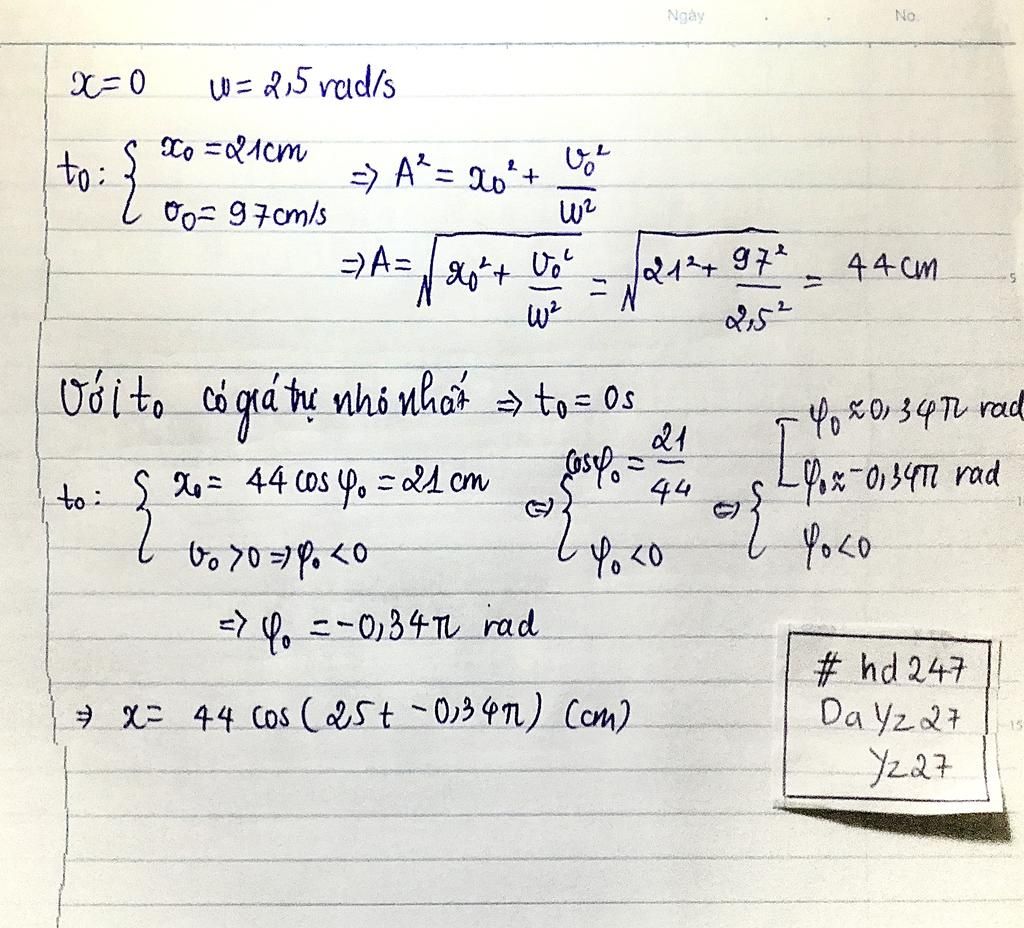 Ngày . . No.
x = 0 ω = 2,5 rad/s
t₀: { x₀ = 21cm ; v₀ = 97cm/s ⇒ A² = x₀² + v₀²/ω²
⇒ A = √(x₀² + v₀²/ω²) = √(21² + 97²/2,5²) = 44cm
Với t₀ có giá trị nhỏ nhất ⇒ t₀ = 0s
t₀: { x₀ = 44 cosφ₀ = 21 cm ; v₀ > 0 ⇒ φ₀ < 0 ⇔ { cosφ₀ = 21/44 ; φ₀ < 0 ⇔ { [ φ₀ ≈ 0,34π rad ; φ₀ ≈ -0,34π rad ; φ₀ < 0
⇒ φ₀ = -0,34π rad
⇒ x = 44 cos(25t - 0,34π) (cm)
# hd247
DaYz27
Yz27
5
15